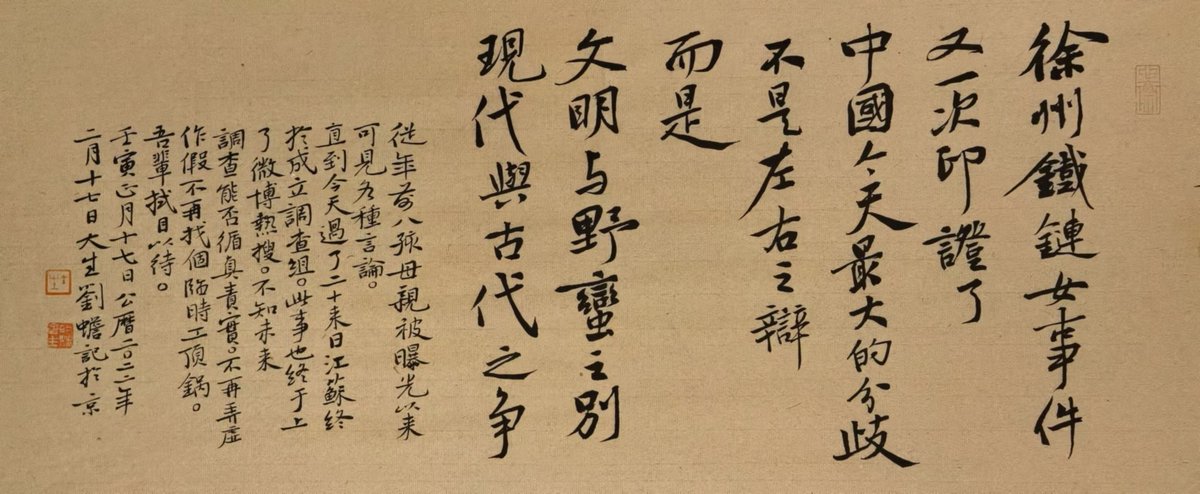 徐州鐵鏈女事件
又一次印證了
中國今天最大的分歧
不是左右之辯
而是
文明与野蠻之別
現代與古代之争
從年前八孩母親被曝光以来
可見各種言論。
直到今天過了二十来日江蘇終
於成立調查組。此事也终于上
了微博熱搜。不知未来
調查能否循真責實。不再弄虛
作假不再找個临時工顶鍋。
吾輩拭目以待。
壬寅正月十七日公曆二〇二二年
二月十七日大生劉蟾記於京